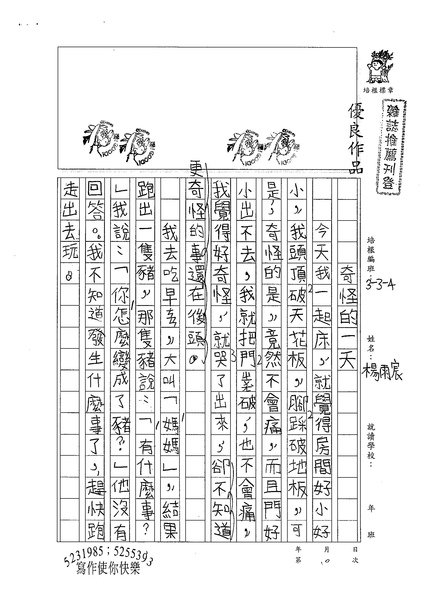 培根標章
優良作品
培根編班：3-3-4
姓名：楊雨宸
就讀學校：
年 班
年 月 日
第 次
奇怪的一天
今天我一起床，就覺得房間好小好
小，我頭頂破天花板，腳踩破地板，可
是，奇怪的是，竟然不會痛，而且門好
小出不去，我就把門撞破，也不會痛。
我覺得好奇怪，就哭了出來，卻不知道
更奇怪的事還在後頭。
我去吃早差，大叫「媽媽」，結果
跑出一隻豬，那隻豬說：「有什麼事？
」我說：「你怎麼變成了豬？」他沒有
回答。我不知道發生什麼事了，趕快跑
走出去玩。
5231985；5255393
寫作使你快樂